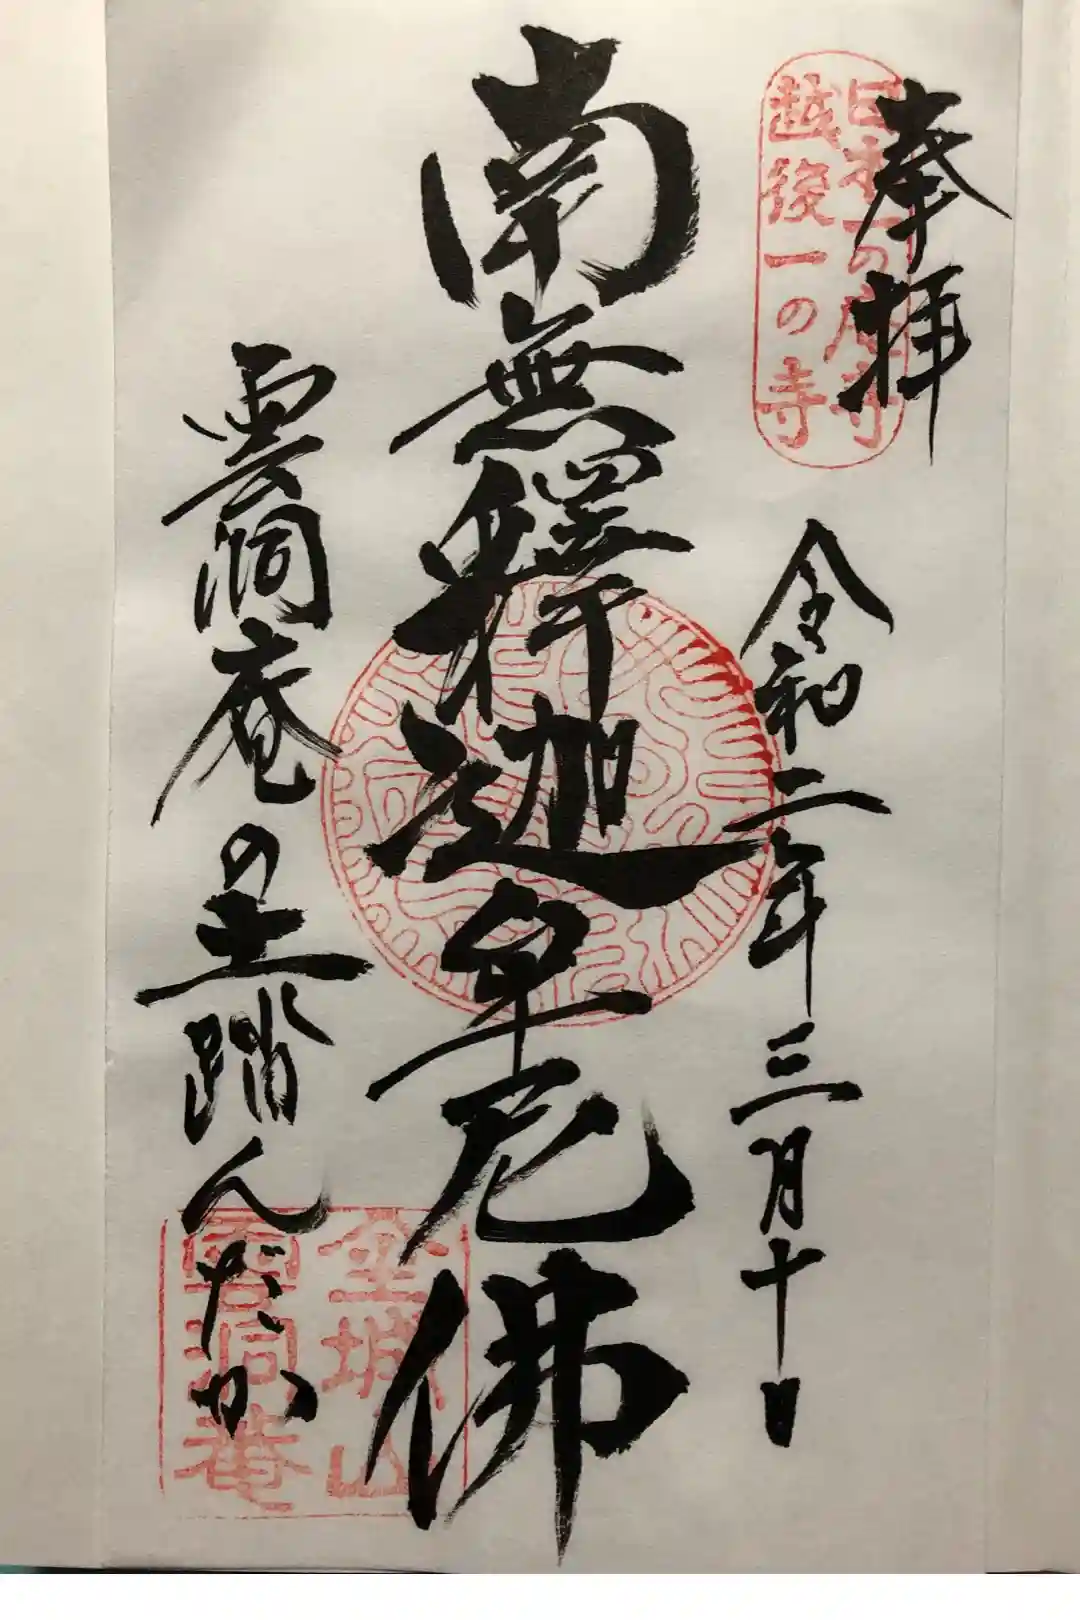 奉拝
日本一の庵寺
越後一の寺
令和二年三月十日
南無釋迦牟尼佛
雲洞庵の土踏んだか
金城山
雲洞菴